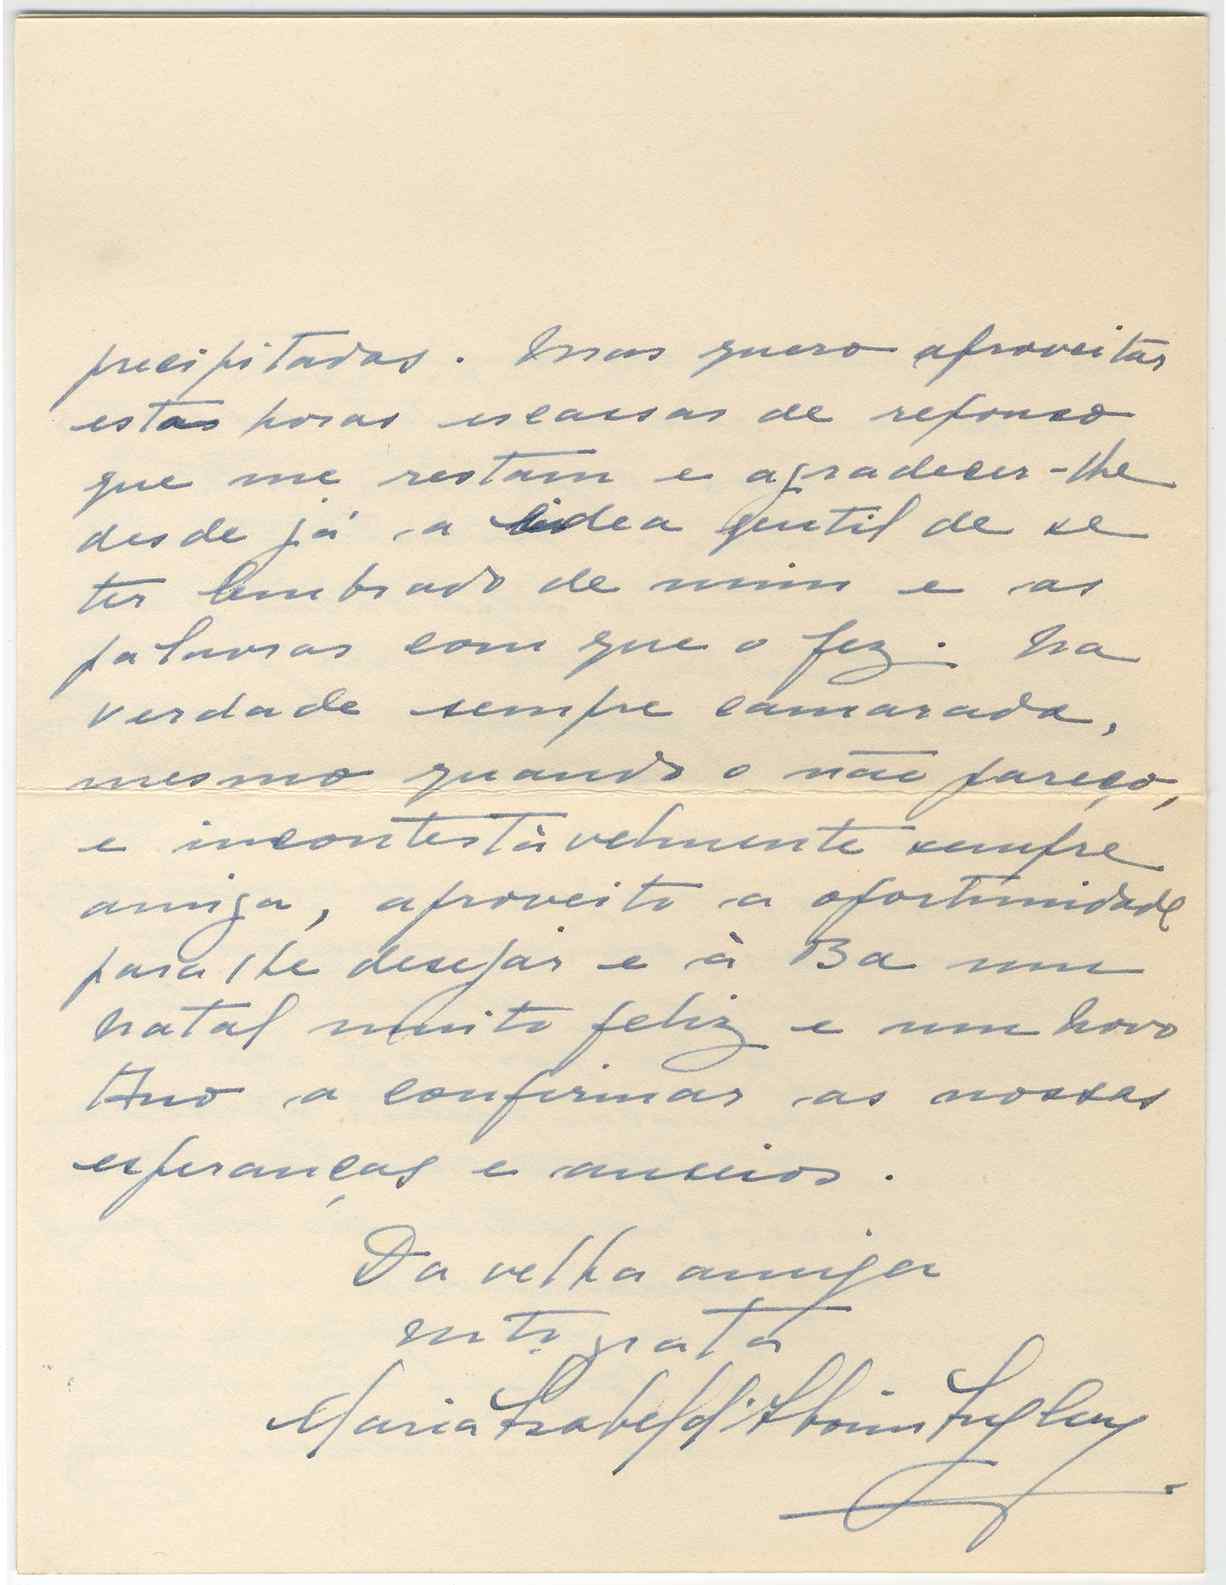 precipitadas. Mas quero aproveitar
estas horas escassas de repouso
que me restam e agradecer-lhe
desde já a idea gentil de se
ter lembrado de mim e as
palavras com que o fez. Na
verdade sempre camarada,
mesmo quando o não pareço,
e incontestàvelmente sempre
amiga, aproveito a oportunidade
para lhe desejar e à Ba um
Natal muito feliz e um novo
Ano a confirmar as nossas
esperanças e anseios.
Da velha amiga
mto grata
Maria Isabel d'Aboim Inglez